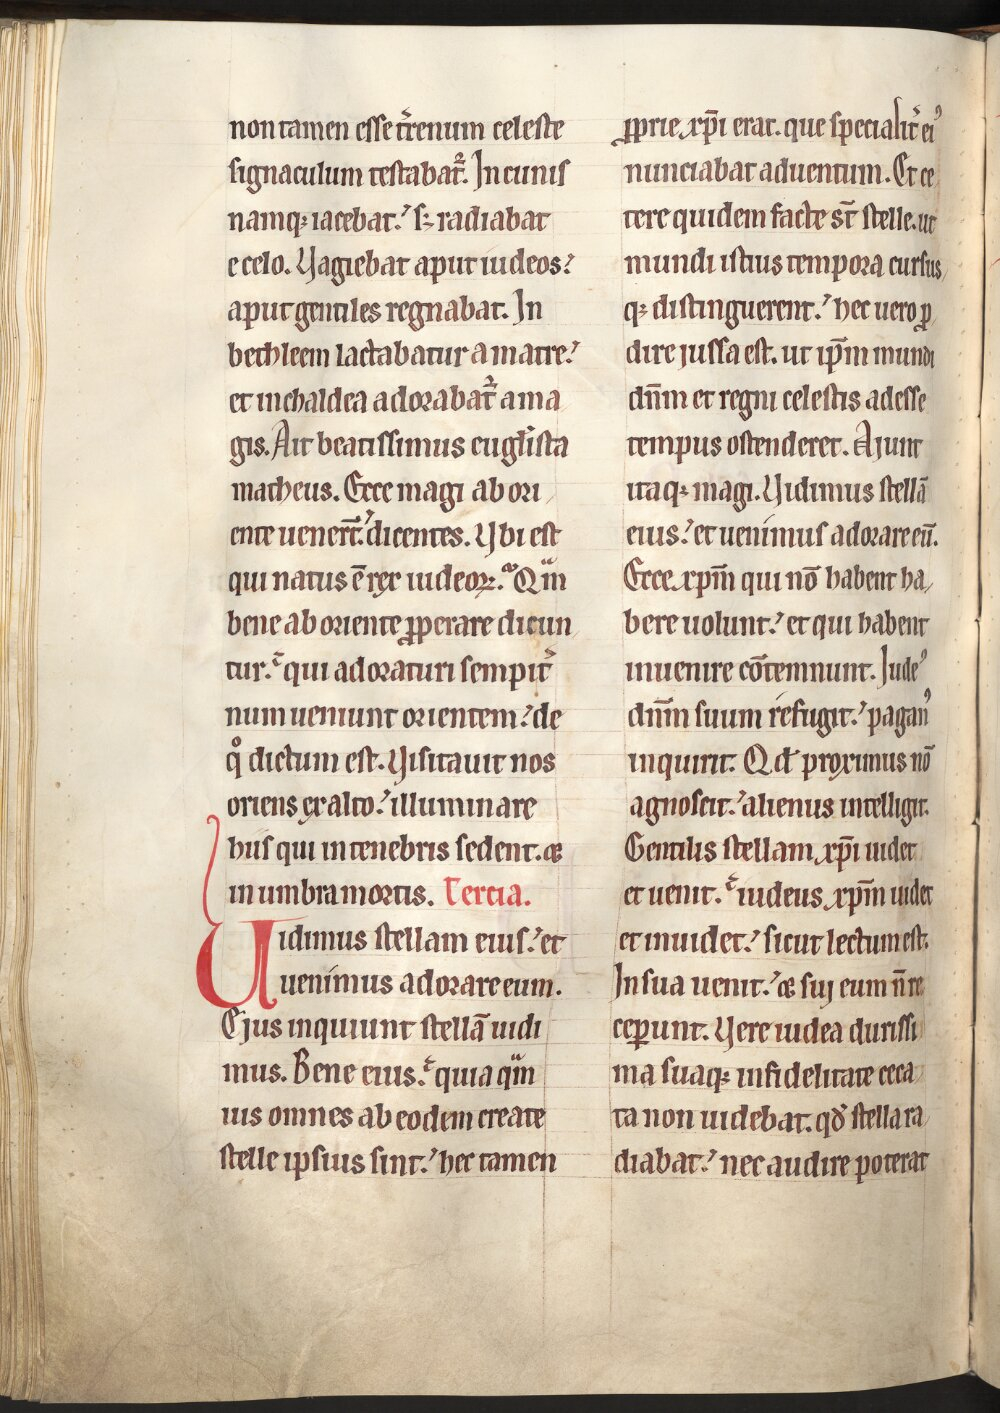 non tamen esse t̄renum celeste
signaculum testabat᷑. In cunis
namq; iacebat. s; radiabat
e celo. Vagiebat aput iudeos.
aput gentiles regnabat. In
bethleem lactabatur a matre.
et in chaldea adorabat᷑ a ma
gis. Ait beatissimus eugl̄ista
matheus. Ecce magi ab ori
ente uener̄t. dicentes. Vbi est
qui natus ē rex iudeoꝝ. Qm̄
bene ab oriente ꝓperare dicun
tur. qui adoraturi sempit̄
num ueniunt orientem. de
qͦ dictum est. Visitauit nos
oriens ex alto. illuminare
hiis qui in tenebris sedent. &
in umbra mortis. Tercia.
Vidimus stellam eius. et
uenimus adorare eum.
Ejus inquiunt stellā uidi
mus. Bene eius. quia qm̄
uis omnes ab eodem create
stelle ipsius sint. hec tamen
ꝓprie xp̄i erat. que specialit̄ eiꝰ
nunciabat aduentum. Et ce
tere quidem facte st̄ stelle. ut
mundi istius tempora cursus
q; distinguerent. hec uero ꝓ
dire jussa est. ut ip̄m mundi
dn̄m et regni celestis adesse
tempus ostenderet. Ajunt
itaq; magi. Vidimus stellā
eius. et uenimus adorare eū.
Ecce xp̄m qui nō habent ha
bere uolunt. et qui habent
inuenire cōtemnunt. Judeꝰ
dn̄m suum refugit. paganꝰ
inquirit. Qd̄ proximus nō
agnoscit. alienus intelligit.
Gentilis stellam xp̄i uidet
et uenit. iudeus xp̄m uidet
et inuidet. sicut lectum est.
In sua uenit. & suj eum n̄ re
ceꝑunt. Vere iudea durissi
ma suaq; infidelitate ceca
ta non uidebat. qd̄ stella ra
diabat. nec audire poterat